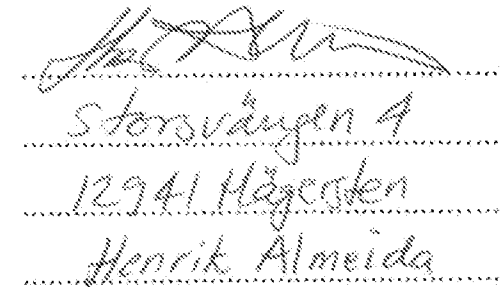 Storsvängen 4
12941 Hägersten
Henrik Almeida